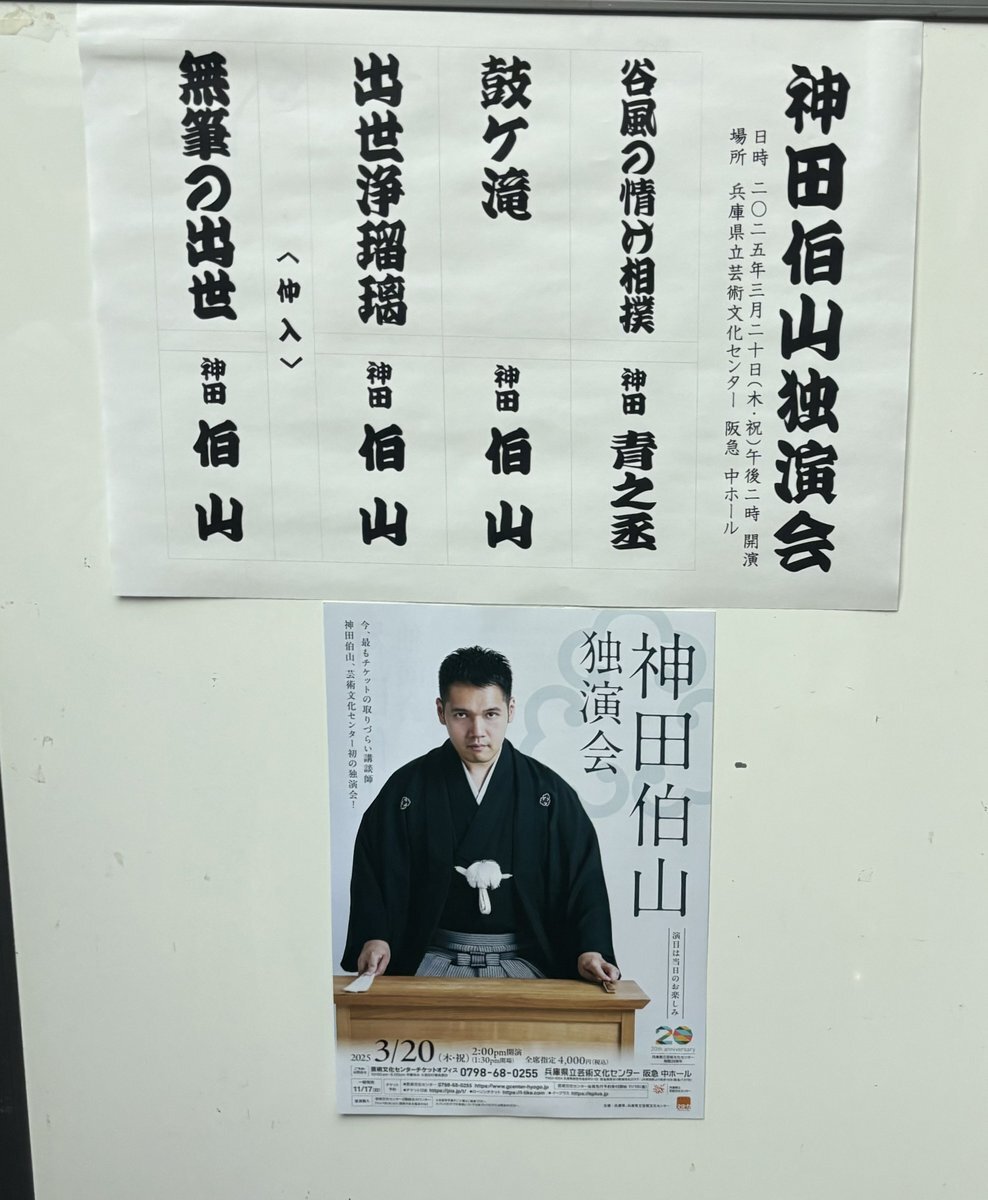 神田伯山独演会
日時 二〇二五年三月二十日(木・祝)午後二時 開演
場所 兵庫県立芸術文化センター 阪急 中ホール
谷風の情け相撲 神田 青之丞
鼓ケ滝 神田 伯山
出世浄瑠璃 神田 伯山
〈仲入〉
無筆の出世 神田 伯山
神田伯山
独演会
今、最もチケットの取りづらい講談師
神田伯山、芸術文化センター初の独演会!
演目は当日のお楽しみ
20
20th anniversary
兵庫県立芸術文化センター
2025 3/20(木・祝) 2:00pm開演
(1:30pm開場)
全席指定 4,000円(税込)
芸術文化センターチケットオフィス 0798-68-0255
兵庫県立芸術文化センター 阪急 中ホール
一般発売
11/17(日)
0798-68-0255 https://www.gcenter-hyogo.jp